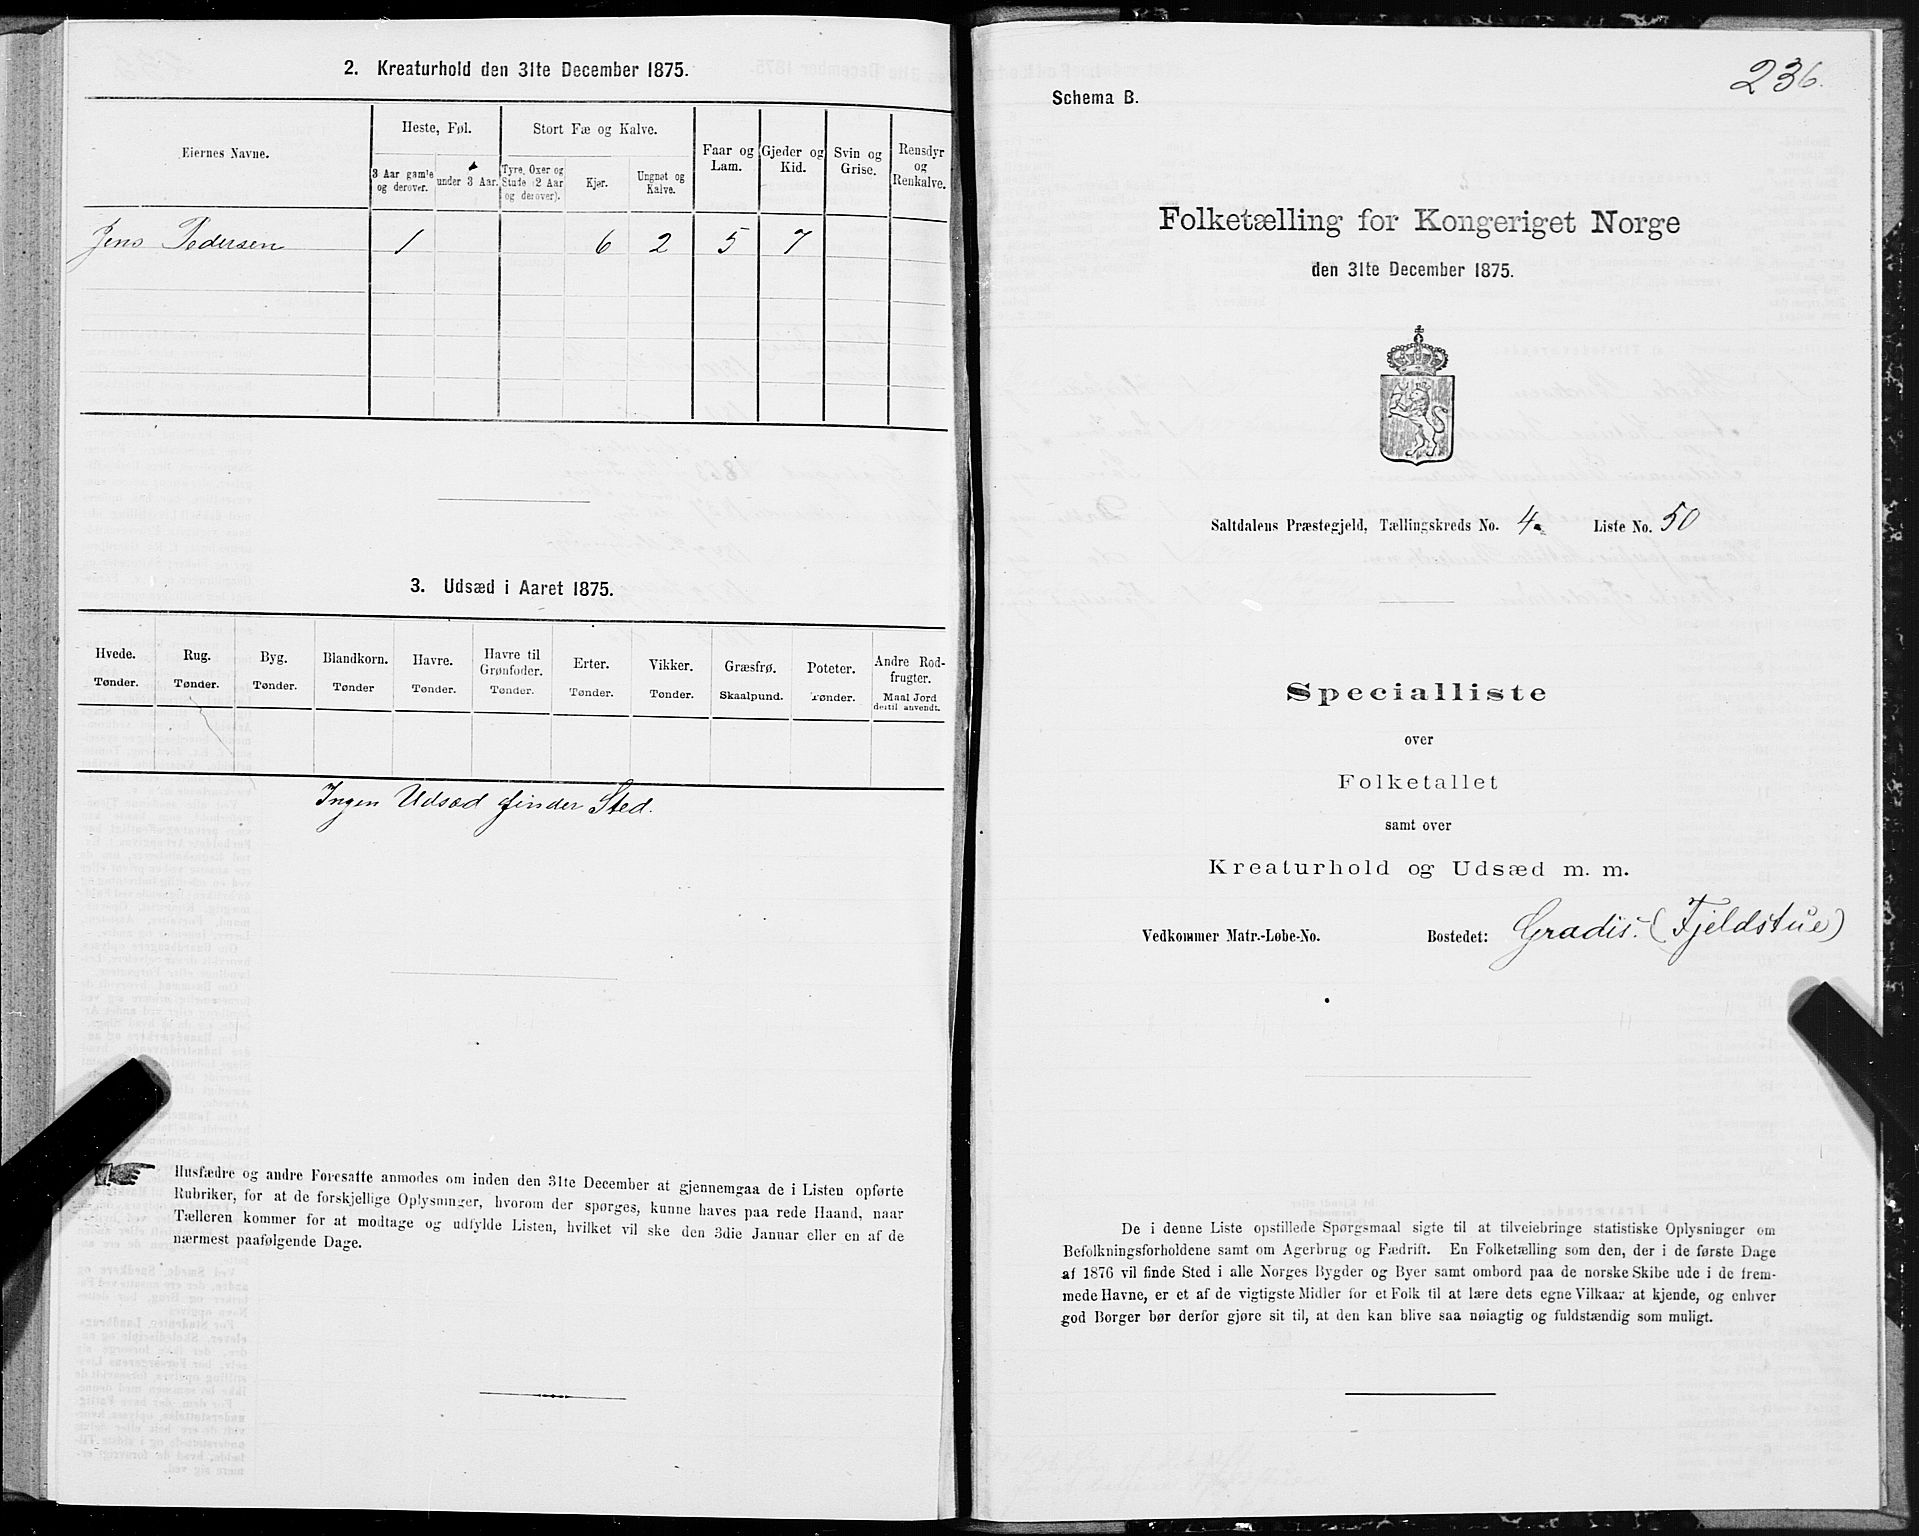 2. Kreaturhold den 31te December 1875.
Eiernes Navne.
Heste, Føl.
Stort Fæ og Kalve.
Faar og Lam.
Gjeder og Kid.
Svin og Grise.
Rensdyr og Renkalve.
3 Aar gamle og derover.
under 3 Aar.
Tyre, Oxer og Stude (2 Aar og derover).
Kjør.
Ungnøt og Kalve.
Jens Pedersen 1 6 2 5 7
3. Udsæd i Aaret 1875.
Hvede. Rug. Byg. Blandkorn. Havre. Havre til Grønfoder. Erter. Vikker. Græsfrø. Poteter. Andre Rodfrugter.
Tønder. Tønder. Tønder. Tønder Tønder. Tønder. Tønder. Tønder. Skaalpund. Tønder. Maal Jord dertil anvendt.
Ingen Udsæd finder Sted.
Husfædre og andre Foresatte anmodes om inden den 31te December at gjennemgaa de i Listen opførte
Rubriker, for at de forskjellige Oplysninger, hvorom der spørges, kunne haves paa rede Haand, naar
Tælleren kommer for at modtage og udfylde Listen, hvilket vil ske den 3die Januar eller en af de
nærmest paafølgende Dage.
236.
Schema B.
Folketælling for Kongeriget Norge
den 31te December 1875.
Saltdalens Præstegjeld, Tællingskreds No. 4. Liste No. 50
Specialliste
over
Folketallet
samt over
Kreaturhold og Udsæd m. m.
Vedkommer Matr.-Løbe-No. Bostedet: Gradis. (Fjeldstue)
De i denne Liste opstillede Spørgsmaal sigte til at tilveiebringe statistiske Oplysninger om
Befolkningsforholdene samt om Agerbrug og Fædrift. En Folketælling som den, der i de første Dage
af 1876 vil finde Sted i alle Norges Bygder og Byer samt ombord paa de norske Skibe ude i de frem-
mede Havne, er et af de vigtigste Midler for et Folk til at lære dets egne Vilkaar at kjende, og enhver
god Borger bør derfor gjøre sit til, at den kan blive saa nøiagtig og fuldstændig som muligt.